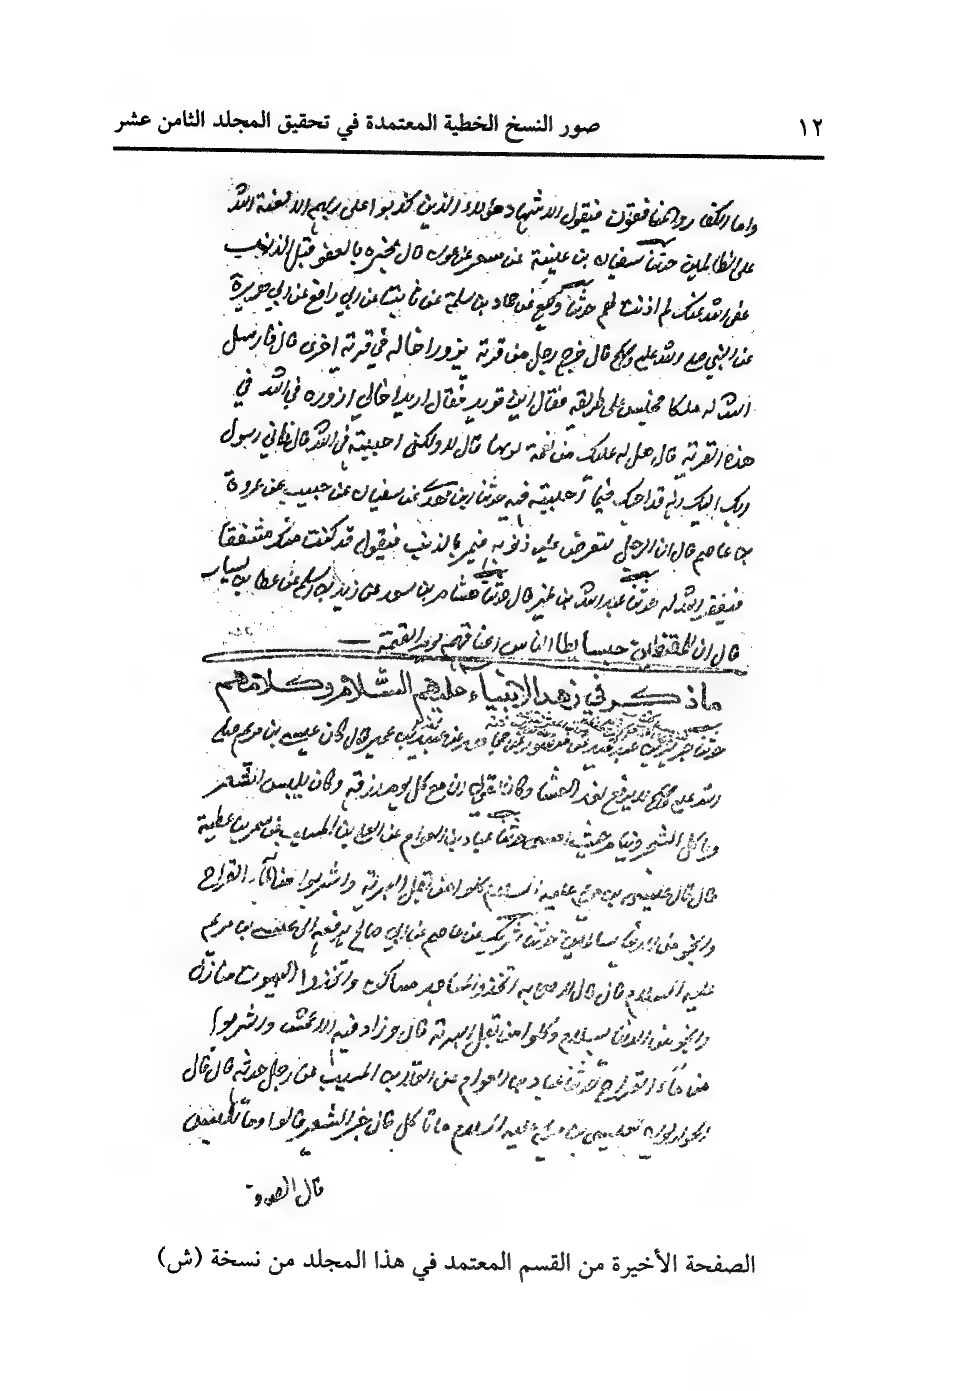 ١٢ صور النسخ الخطية المعتمدة في تحقيق المجلد الثامن عشر
واما الكفار والمنافقون فيقول الاشهاد هؤلاء الذين كذبوا على ربهم الا لعنة الله
على الظالمين حدثنا سفيان بن عيينة عن مسعر عن عون قال يخبره بالعفو قبل الذنب
عفى الله عنك لم اذنت لهم حدثنا وكيع عن حماد بن سلمة عن ثابت عن ابي رافع عن ابي هريرة
عن النبي صلى الله عليه وسلم قال خرج رجل من قرية يزور اخا له في قرية اخرى قال فارسل
الله له ملكا فجلس على طريقه فقال اين تريد فقال اريد اخا لي ازوره في الله في
هذه القرية قال هل له عليك من نعمة تربها قال لا ولكني احببته في الله قال فاني رسول
ربك اليك انه قد احبك فيما احببته فيه حدثنا ابن مهدي عن سفيان عن حبيب عن عروة
بن عامر قال ان الرجل لتعرض عليه ذنوبه فيمر بالذنب فيقول قد كنت منك مشفقا
فيغفر الله له حدثنا عبد الله بن نمير قال حدثنا هشام بن سعد عن زيد بن اسلم عن عطا بن يسار
قال ان حبسا الناس اعناقهم يوم القيمة
ما ذكر في زهد الأنبياء عليهم السلام وكلامهم
حدثنا جرير بن عبد الحميد عن منصور عن مجاهد عن عبيد بن عمير قال كان عيسى بن مريم صلى
الله عليه وسلم لا يرفع لغد العشا وكان يقول ان مع كل يوم رزقه وكان يلبس الشعر
وياكل الشجر وينام حيث امسى حدثنا عباد بن العوام عن العلا بن المسيب عن بن عطية
قال قال عيسى بن مريم عليه السلام كلوا من بقل البرية واشربوا من الماء القراح
وانجوا من الدنيا سالمين حدثنا شريك عن عاصم عن ابي صالح يرفعه الى عيسى بن مريم
عليه السلام قال قال لاصحابه اتخذوا المساجد مساكن واتخذوا البيوت منازل
وانجوا من الدنيا بسلام وكلوا من بقل البرية قال وزاد فيه الاعمش واشربوا
من ماء القراح حدثنا عباد بن العوام عن العلا بن المسيب عن رجل حدثه قال قال
الحواريون لعيسى بن مريم عليه السلام ما تاكل قال خبز الشعير قالوا وما تلبس
قال الصوف
الصفحة الأخيرة من القسم المعتمد في هذا المجلد من نسخة (ش)